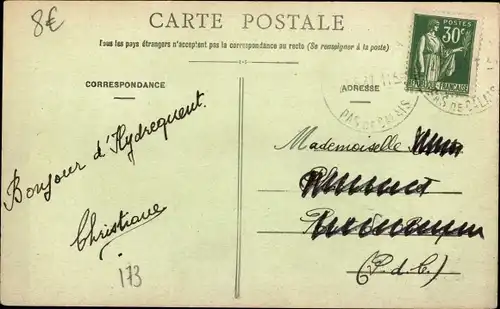 8€
CARTE POSTALE
Tous les pays étrangers n'acceptent pas la correspondance au recto (Se renseigner à la poste)
CORRESPONDANCE
ADRESSE
POSTES
30c
RÉPUBLIQUE FRANÇAISE
PAS DE CALAIS
PAS DE CALAIS
Bonjour d'Hydrequent.
Christiane
173
Mademoiselle
(P. d. C.)